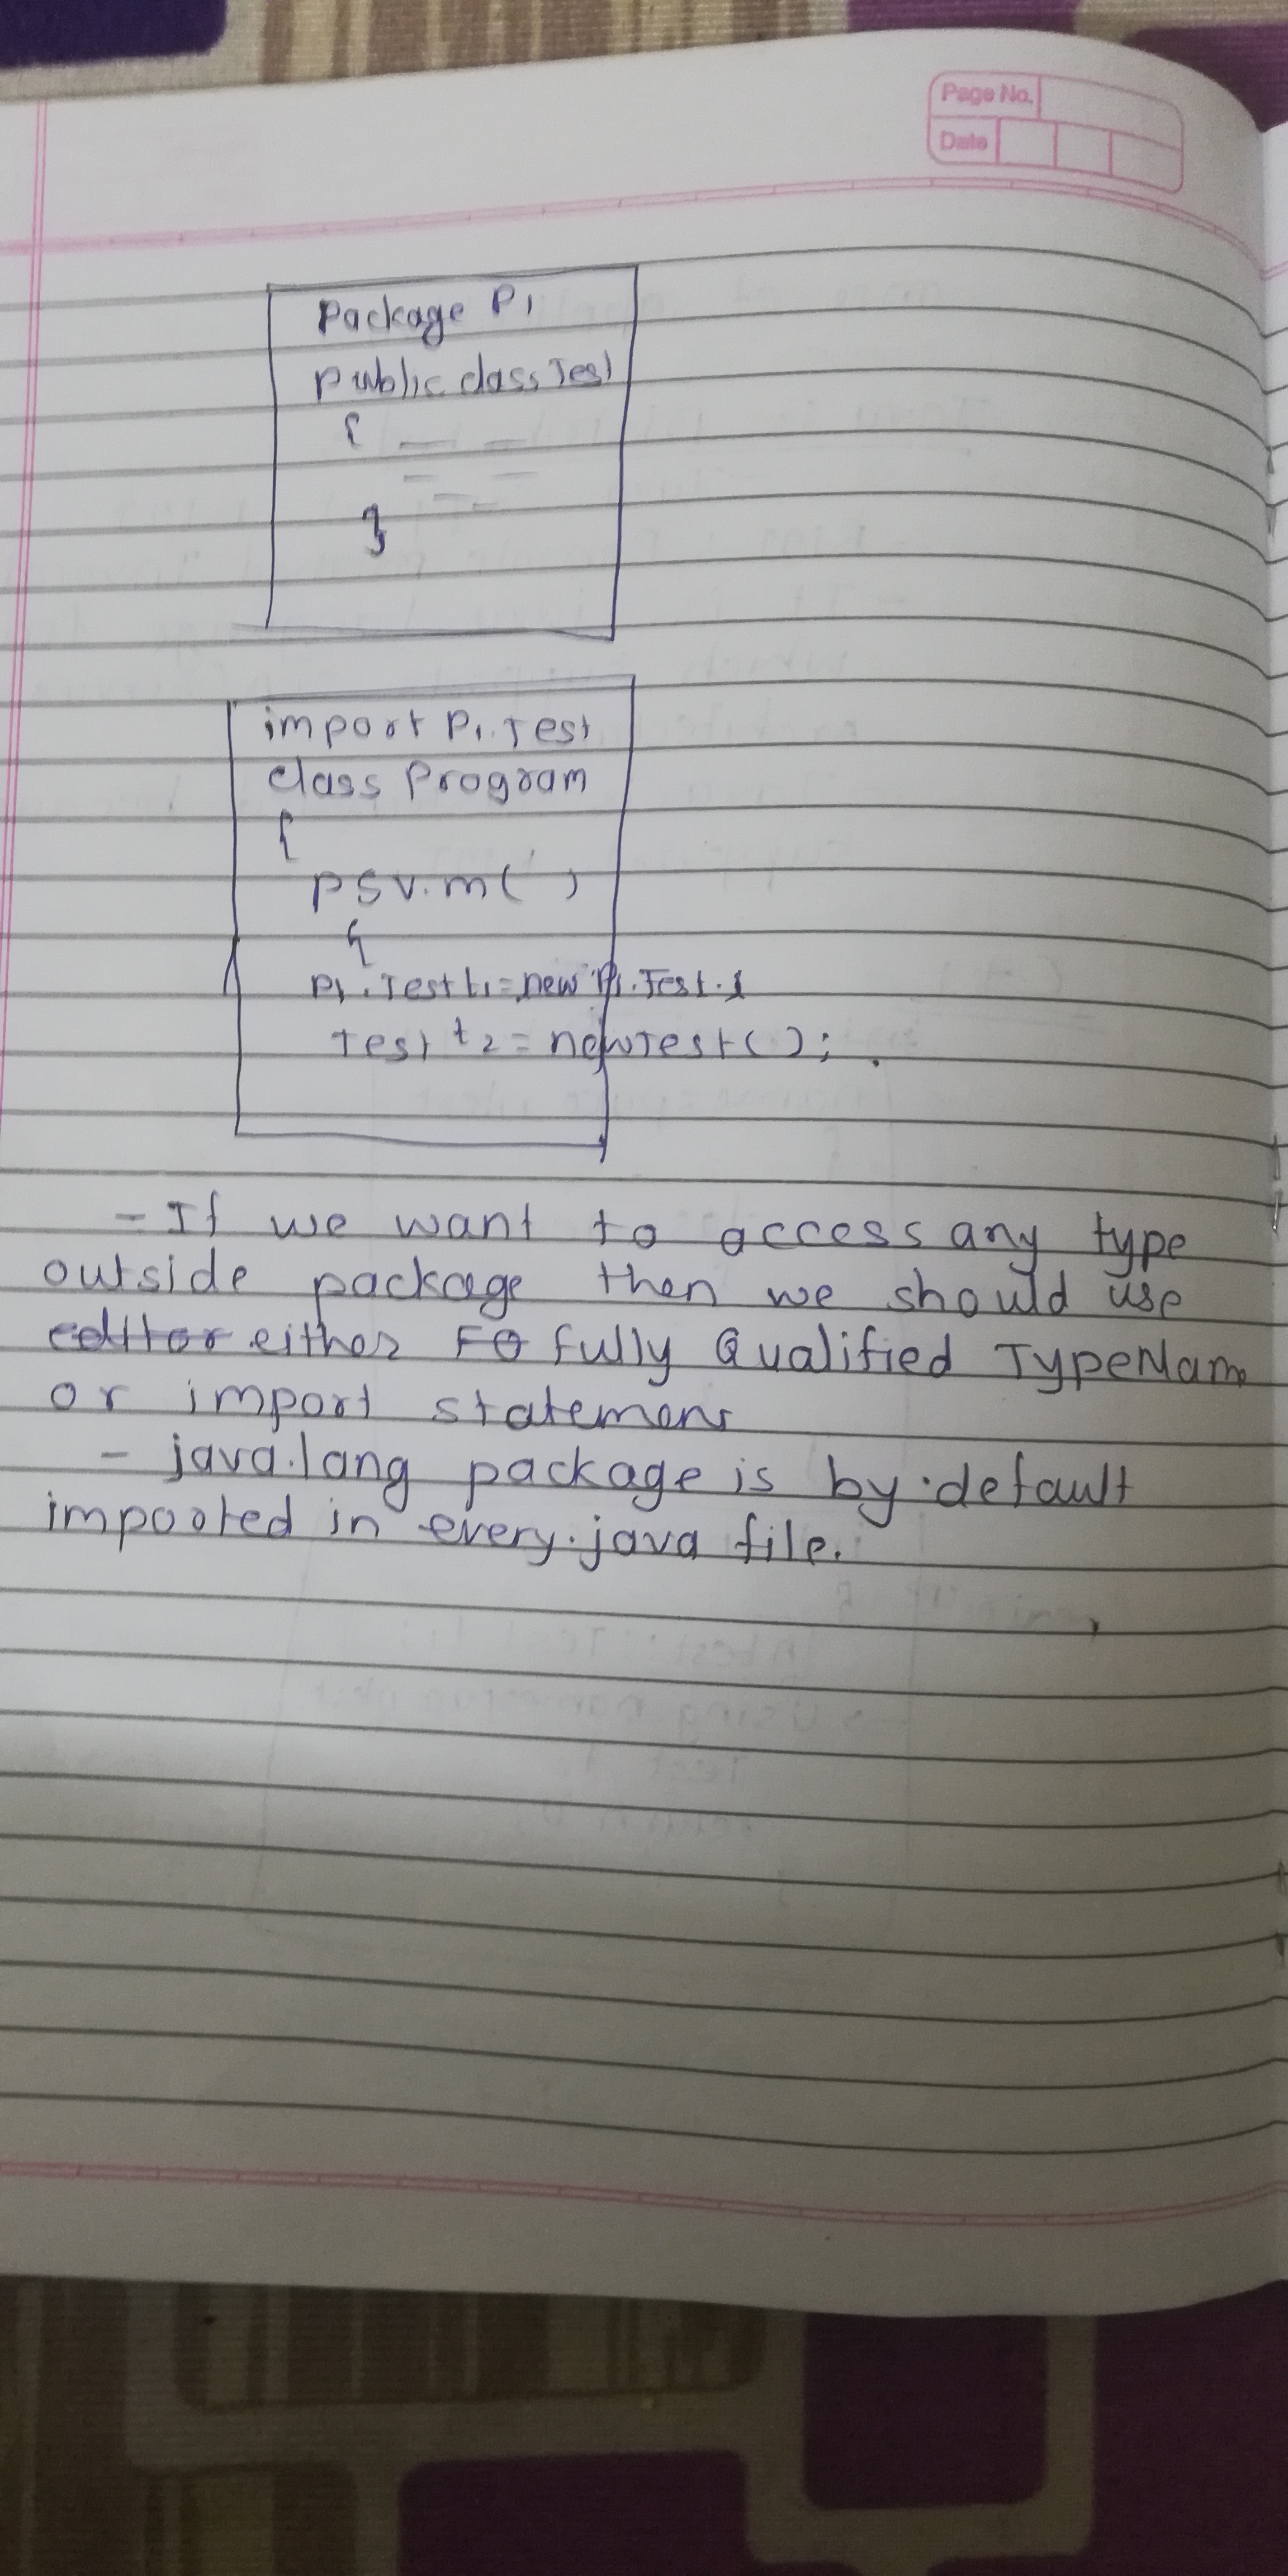 Page No.
Date
Package P1
Public class Test
{
}
import P1.Test
class Program
{
PSV.m( )
{
P1.Test t1=new P1.Test.
Test t2=new Test();
- If we want to access any type
outside package then we should use
either fully Qualified TypeNam
or import statemens
- java.lang package is by default
impooted in every.java file.